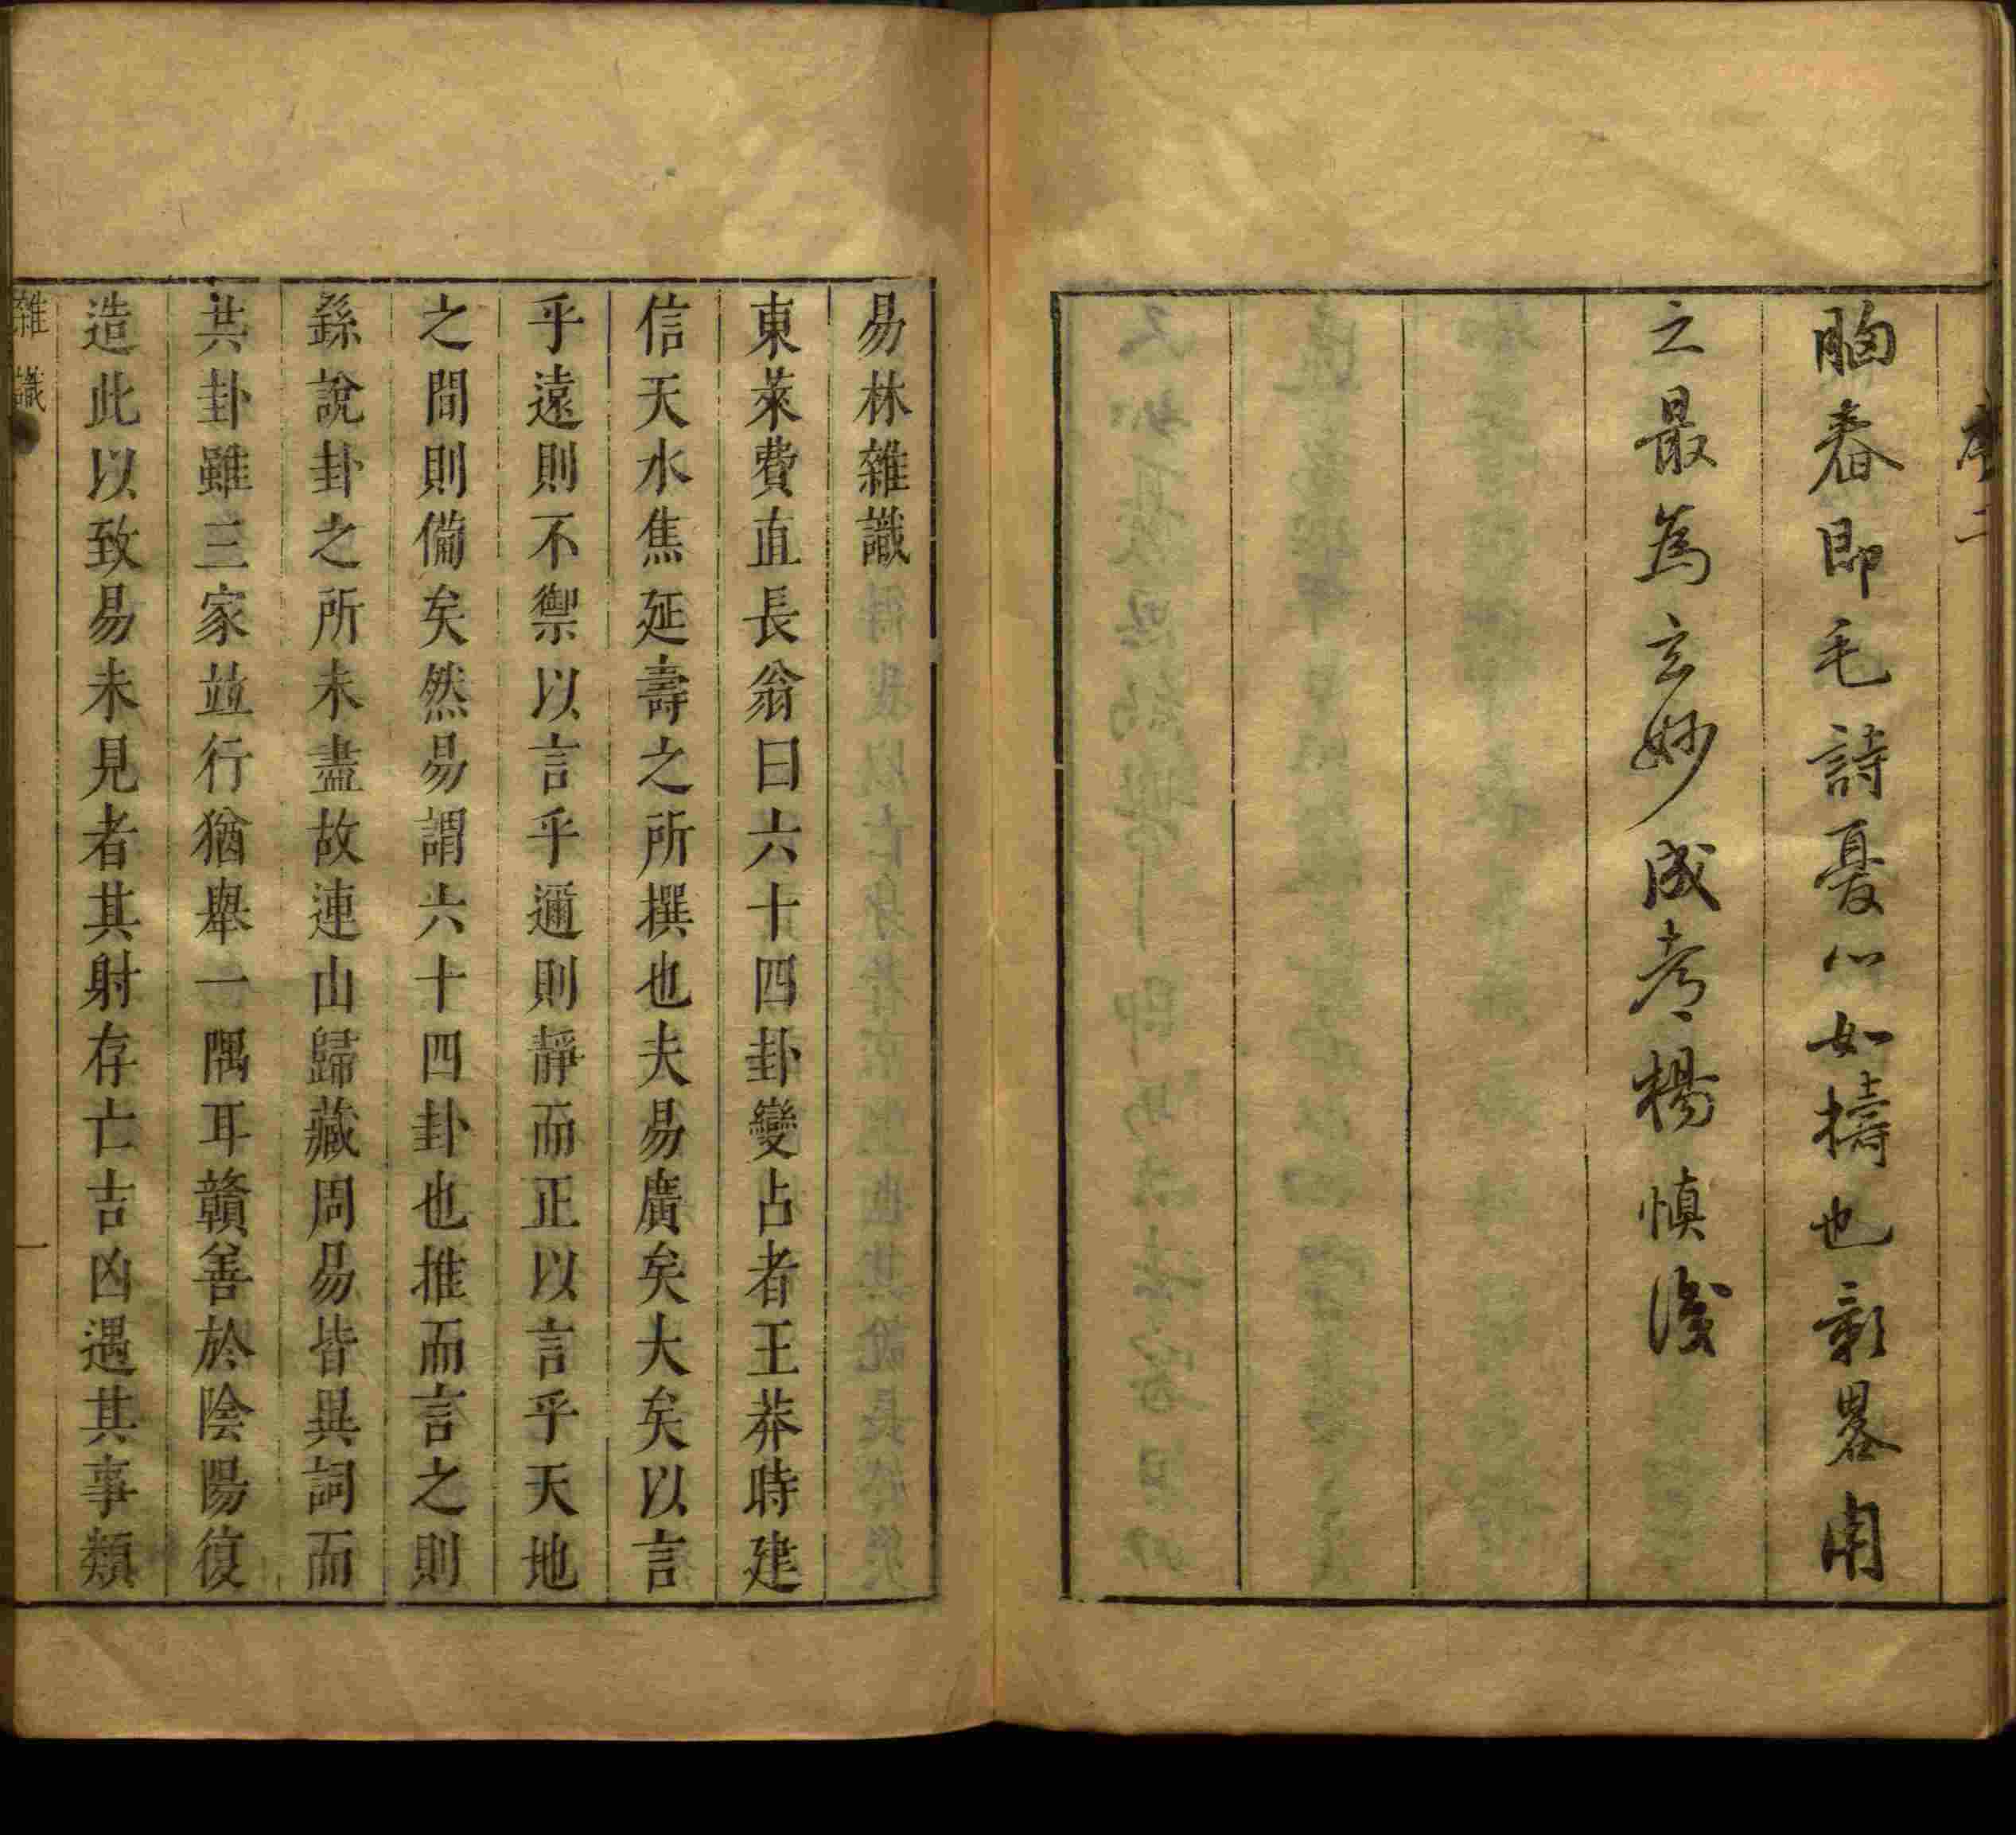 序 二
胸舂即毛詩憂心如擣也彰畧用
之最為玄妙成都楊慎識
易林雜識
東萊費直長翁曰六十四卦變占者王莽時建
信天水焦延壽之所撰也夫易廣矣大矣以言
乎遠則不禦以言乎邇則靜而正以言乎天地
之間則備矣然易謂六十四卦也推而言之則
繇說卦之所未盡故連山歸藏周易皆異詞而
共卦雖三家並行猶舉一隅耳贛善於陰陽復
造此以致易未見者其射存亡吉凶遇其事類
雜識 一